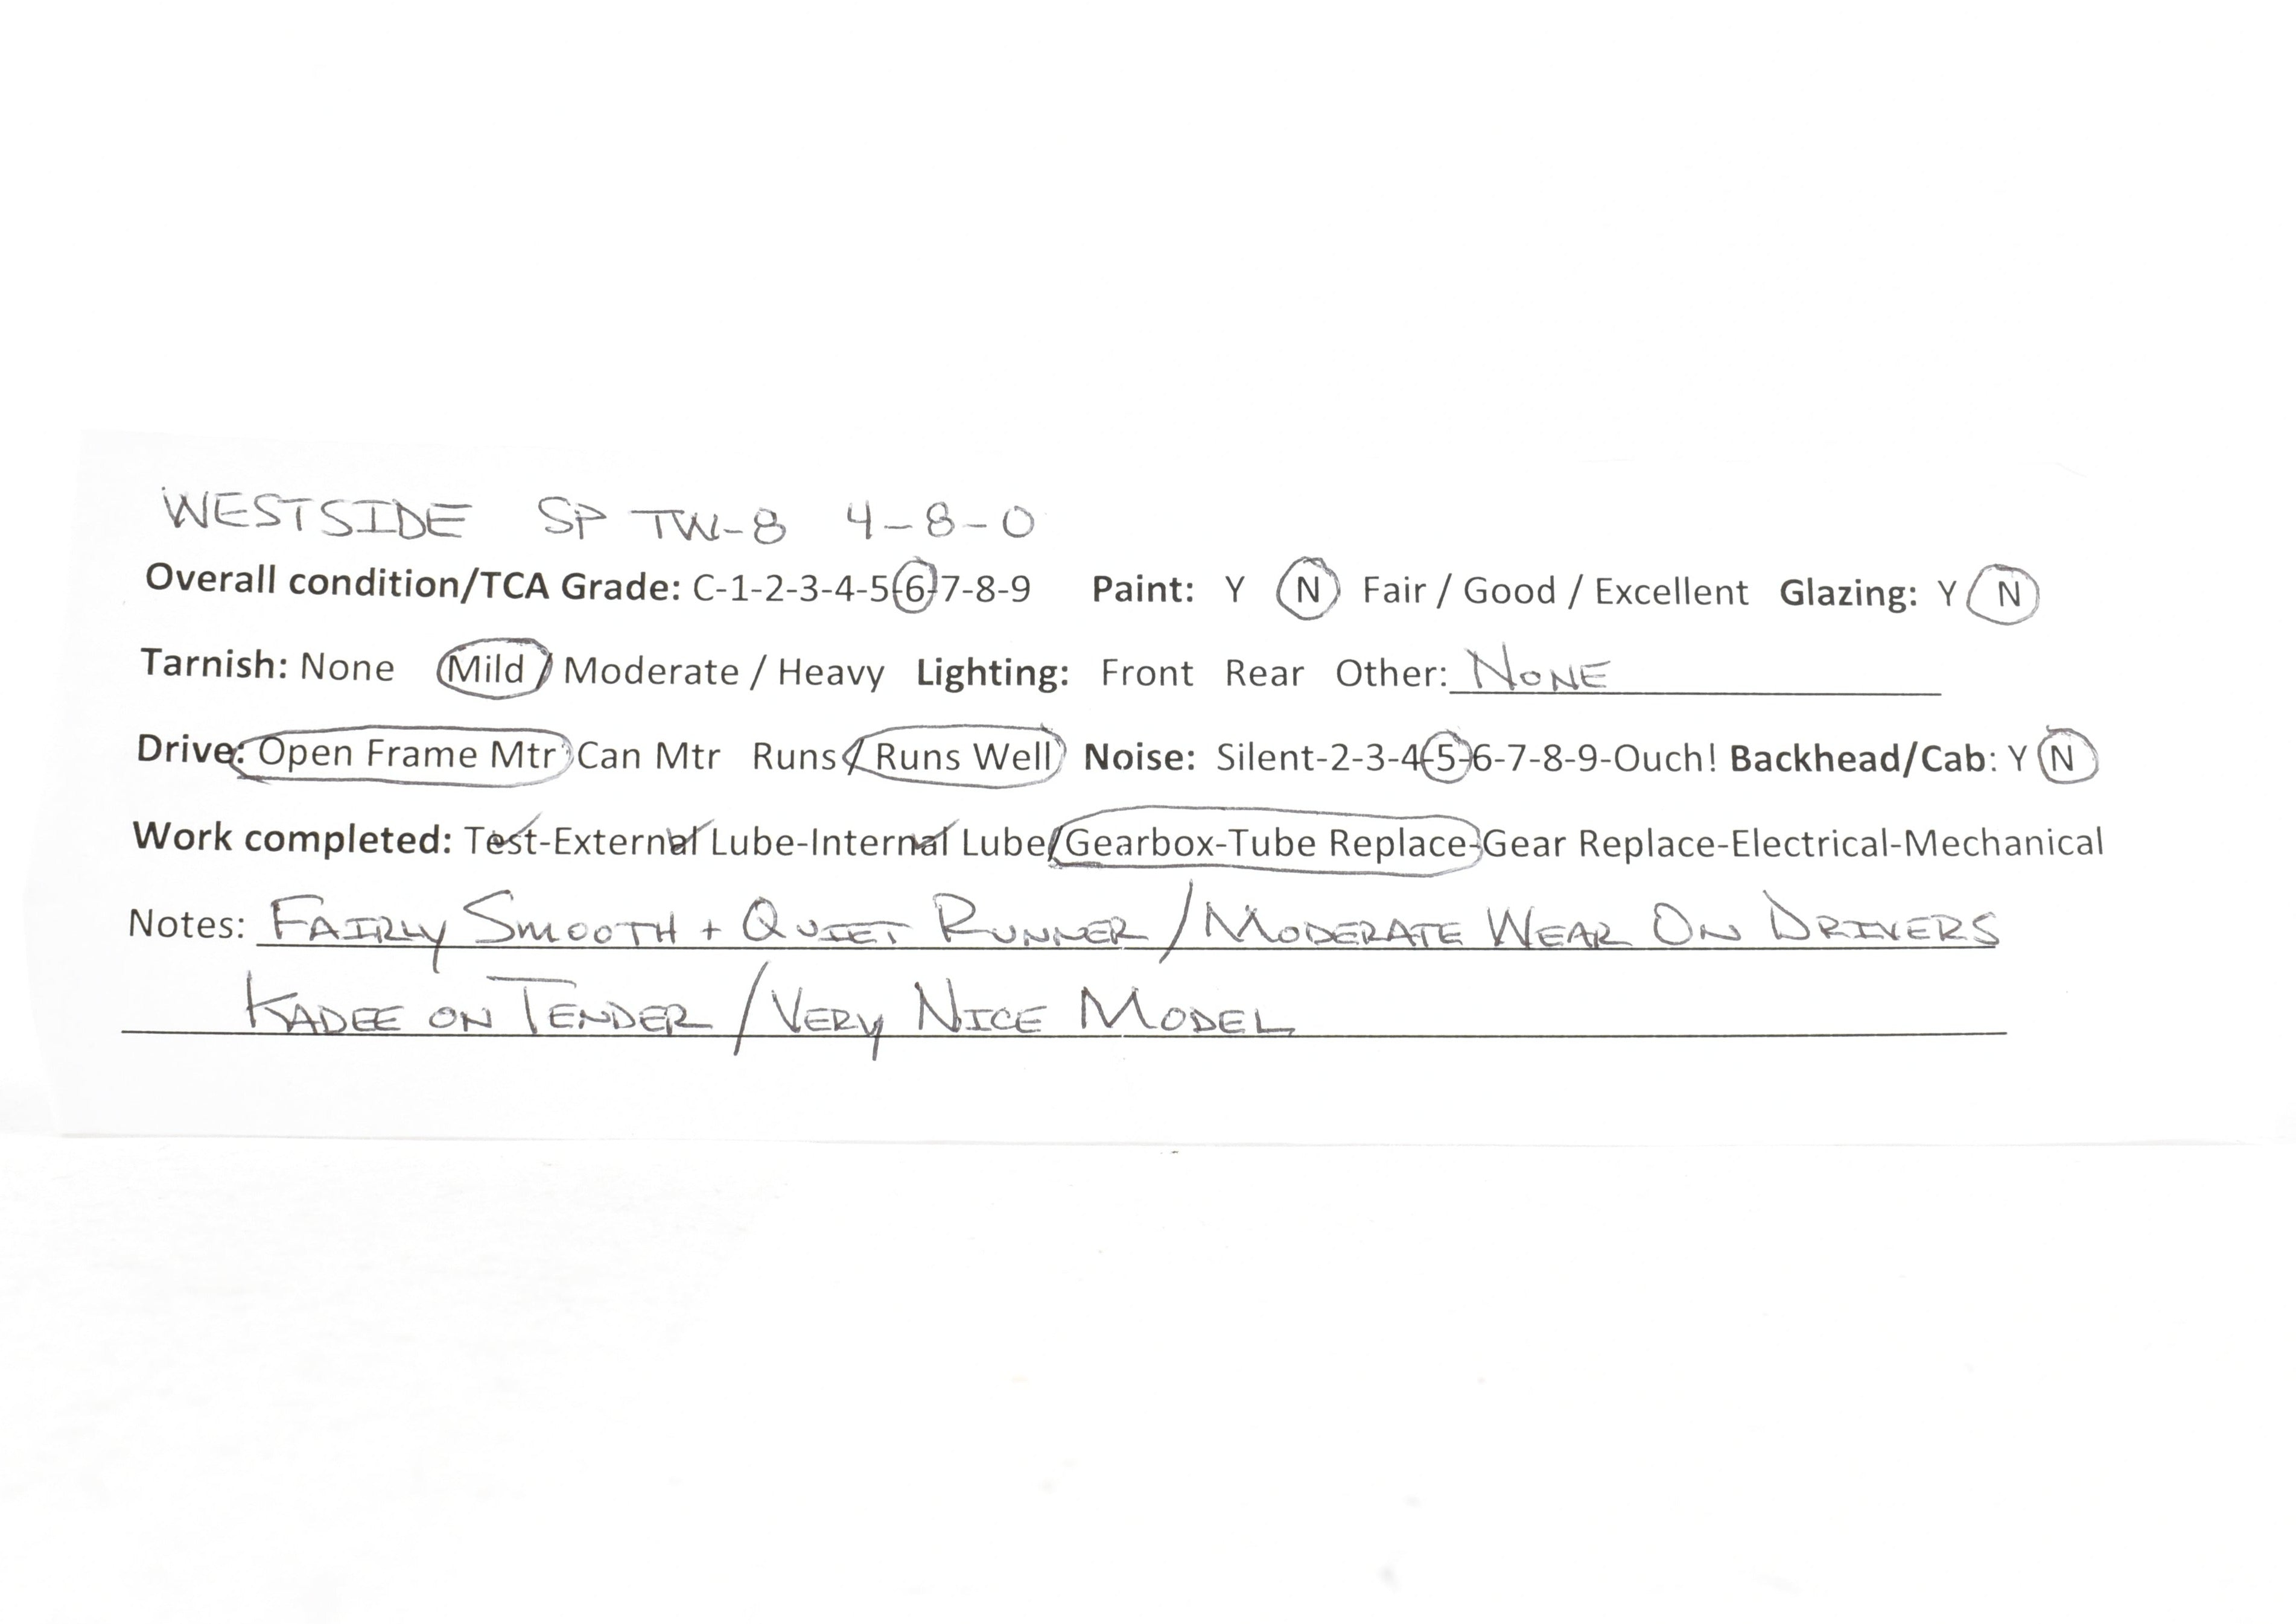 WESTSIDE SP TW-8 4-8-0
Overall condition/TCA Grade: C-1-2-3-4-5-6-7-8-9 Paint: Y N Fair / Good / Excellent Glazing: Y N
Tarnish: None Mild / Moderate / Heavy Lighting: Front Rear Other: NONE
Drive: Open Frame Mtr Can Mtr Runs / Runs Well Noise: Silent-2-3-4-5-6-7-8-9-Ouch! Backhead/Cab: Y N
Work completed: Test-External Lube-Internal Lube/Gearbox-Tube Replace-Gear Replace-Electrical-Mechanical
Notes: FAIRLY SMOOTH + QUIET RUNNER / MODERATE WEAR ON DRIVERS
KADEE ON TENDER / VERY NICE MODEL